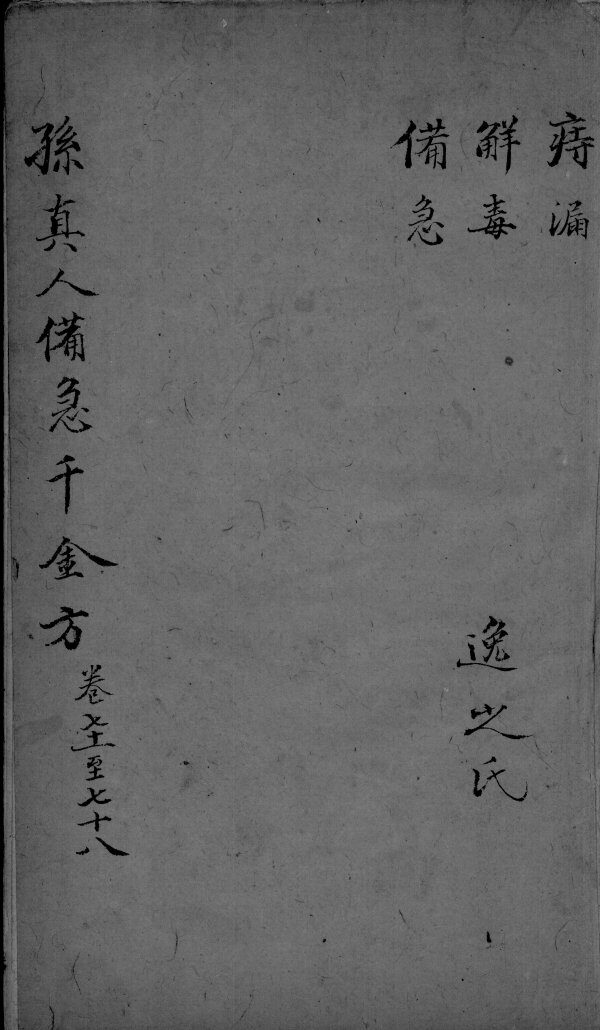 痔漏
解毒
備急
逸之氏
孫真人備急千金方
卷七十一至七十八